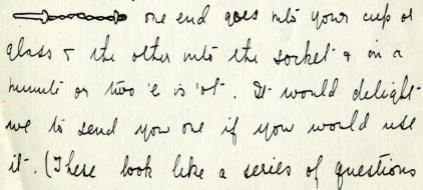 one end goes into your cup or
glass & the other into the socket & in a
minute or two 'e is 'ot. It would delight
me to send you one if you would use
it. (These look like a series of questions